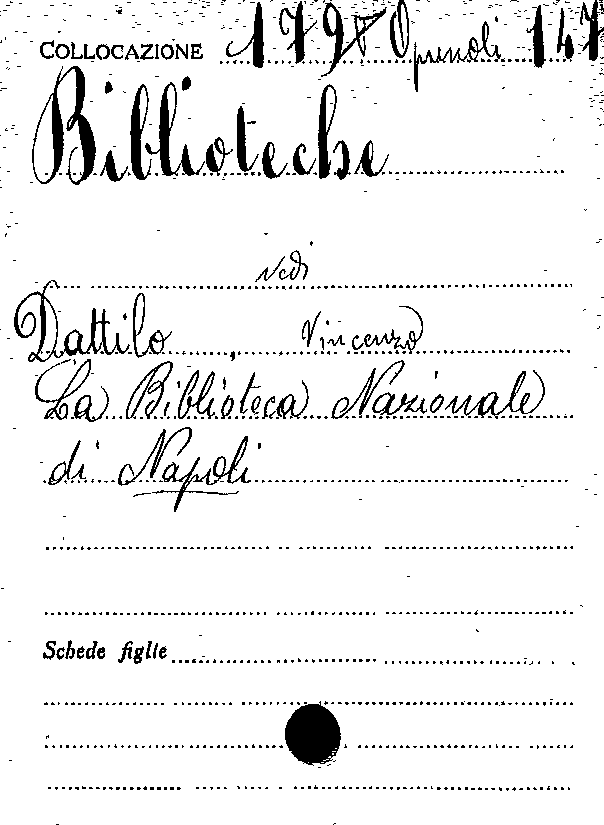 COLLOCAZIONE 147
Biblioteche
Vedi
Dattilo, Vincenzo
La Biblioteca Nazionale
di Napoli
Schede figlie